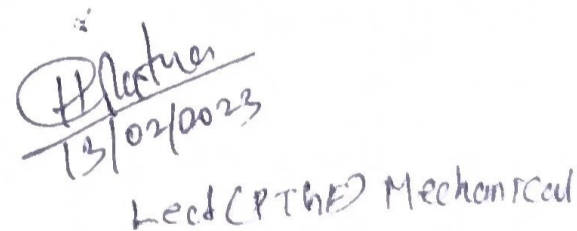 13/02/2023
Lead (PTGE) Mechanical